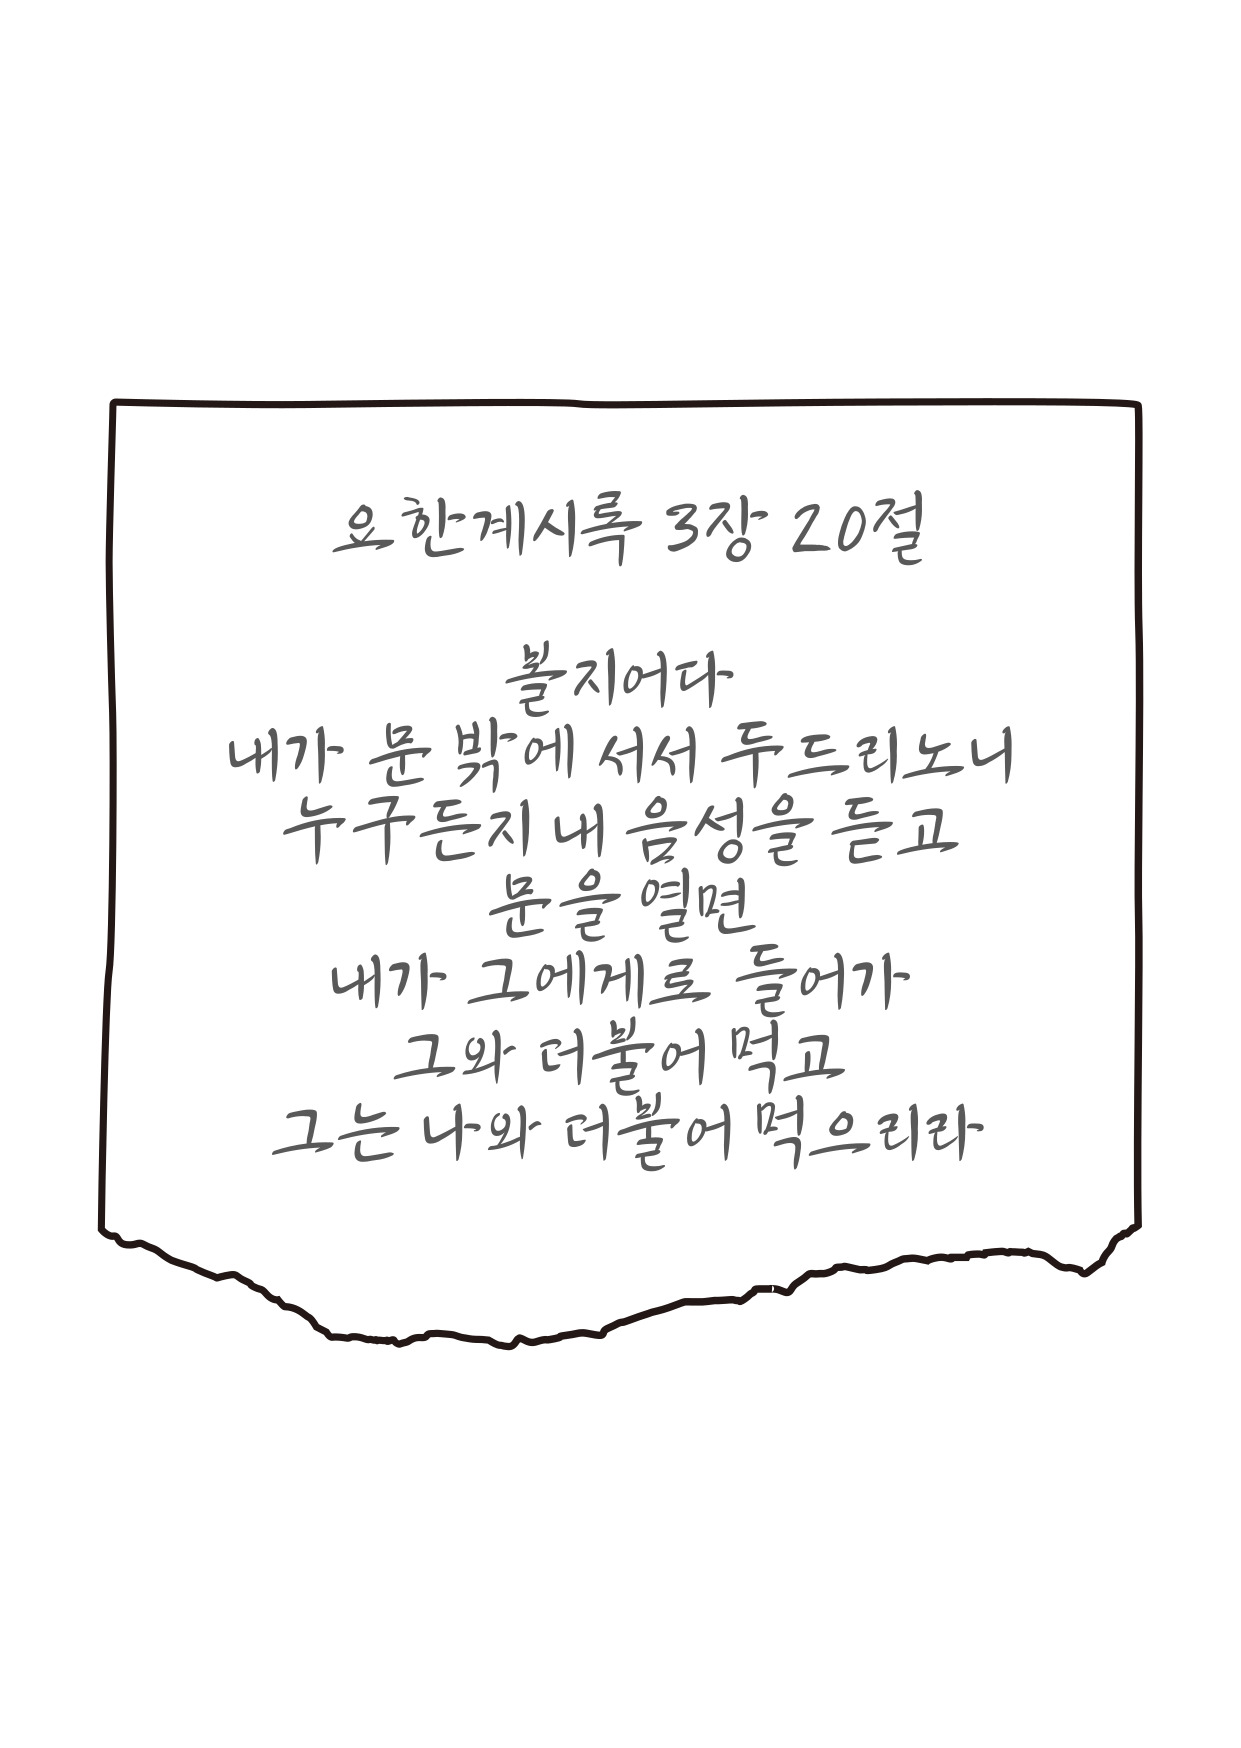 요한계시록 3장 20절
볼지어다
내가 문 밖에 서서 두드리노니
누구든지 내 음성을 듣고
문을 열면
내가 그에게로 들어가
그와 더불어 먹고
그는 나와 더불어 먹으리라